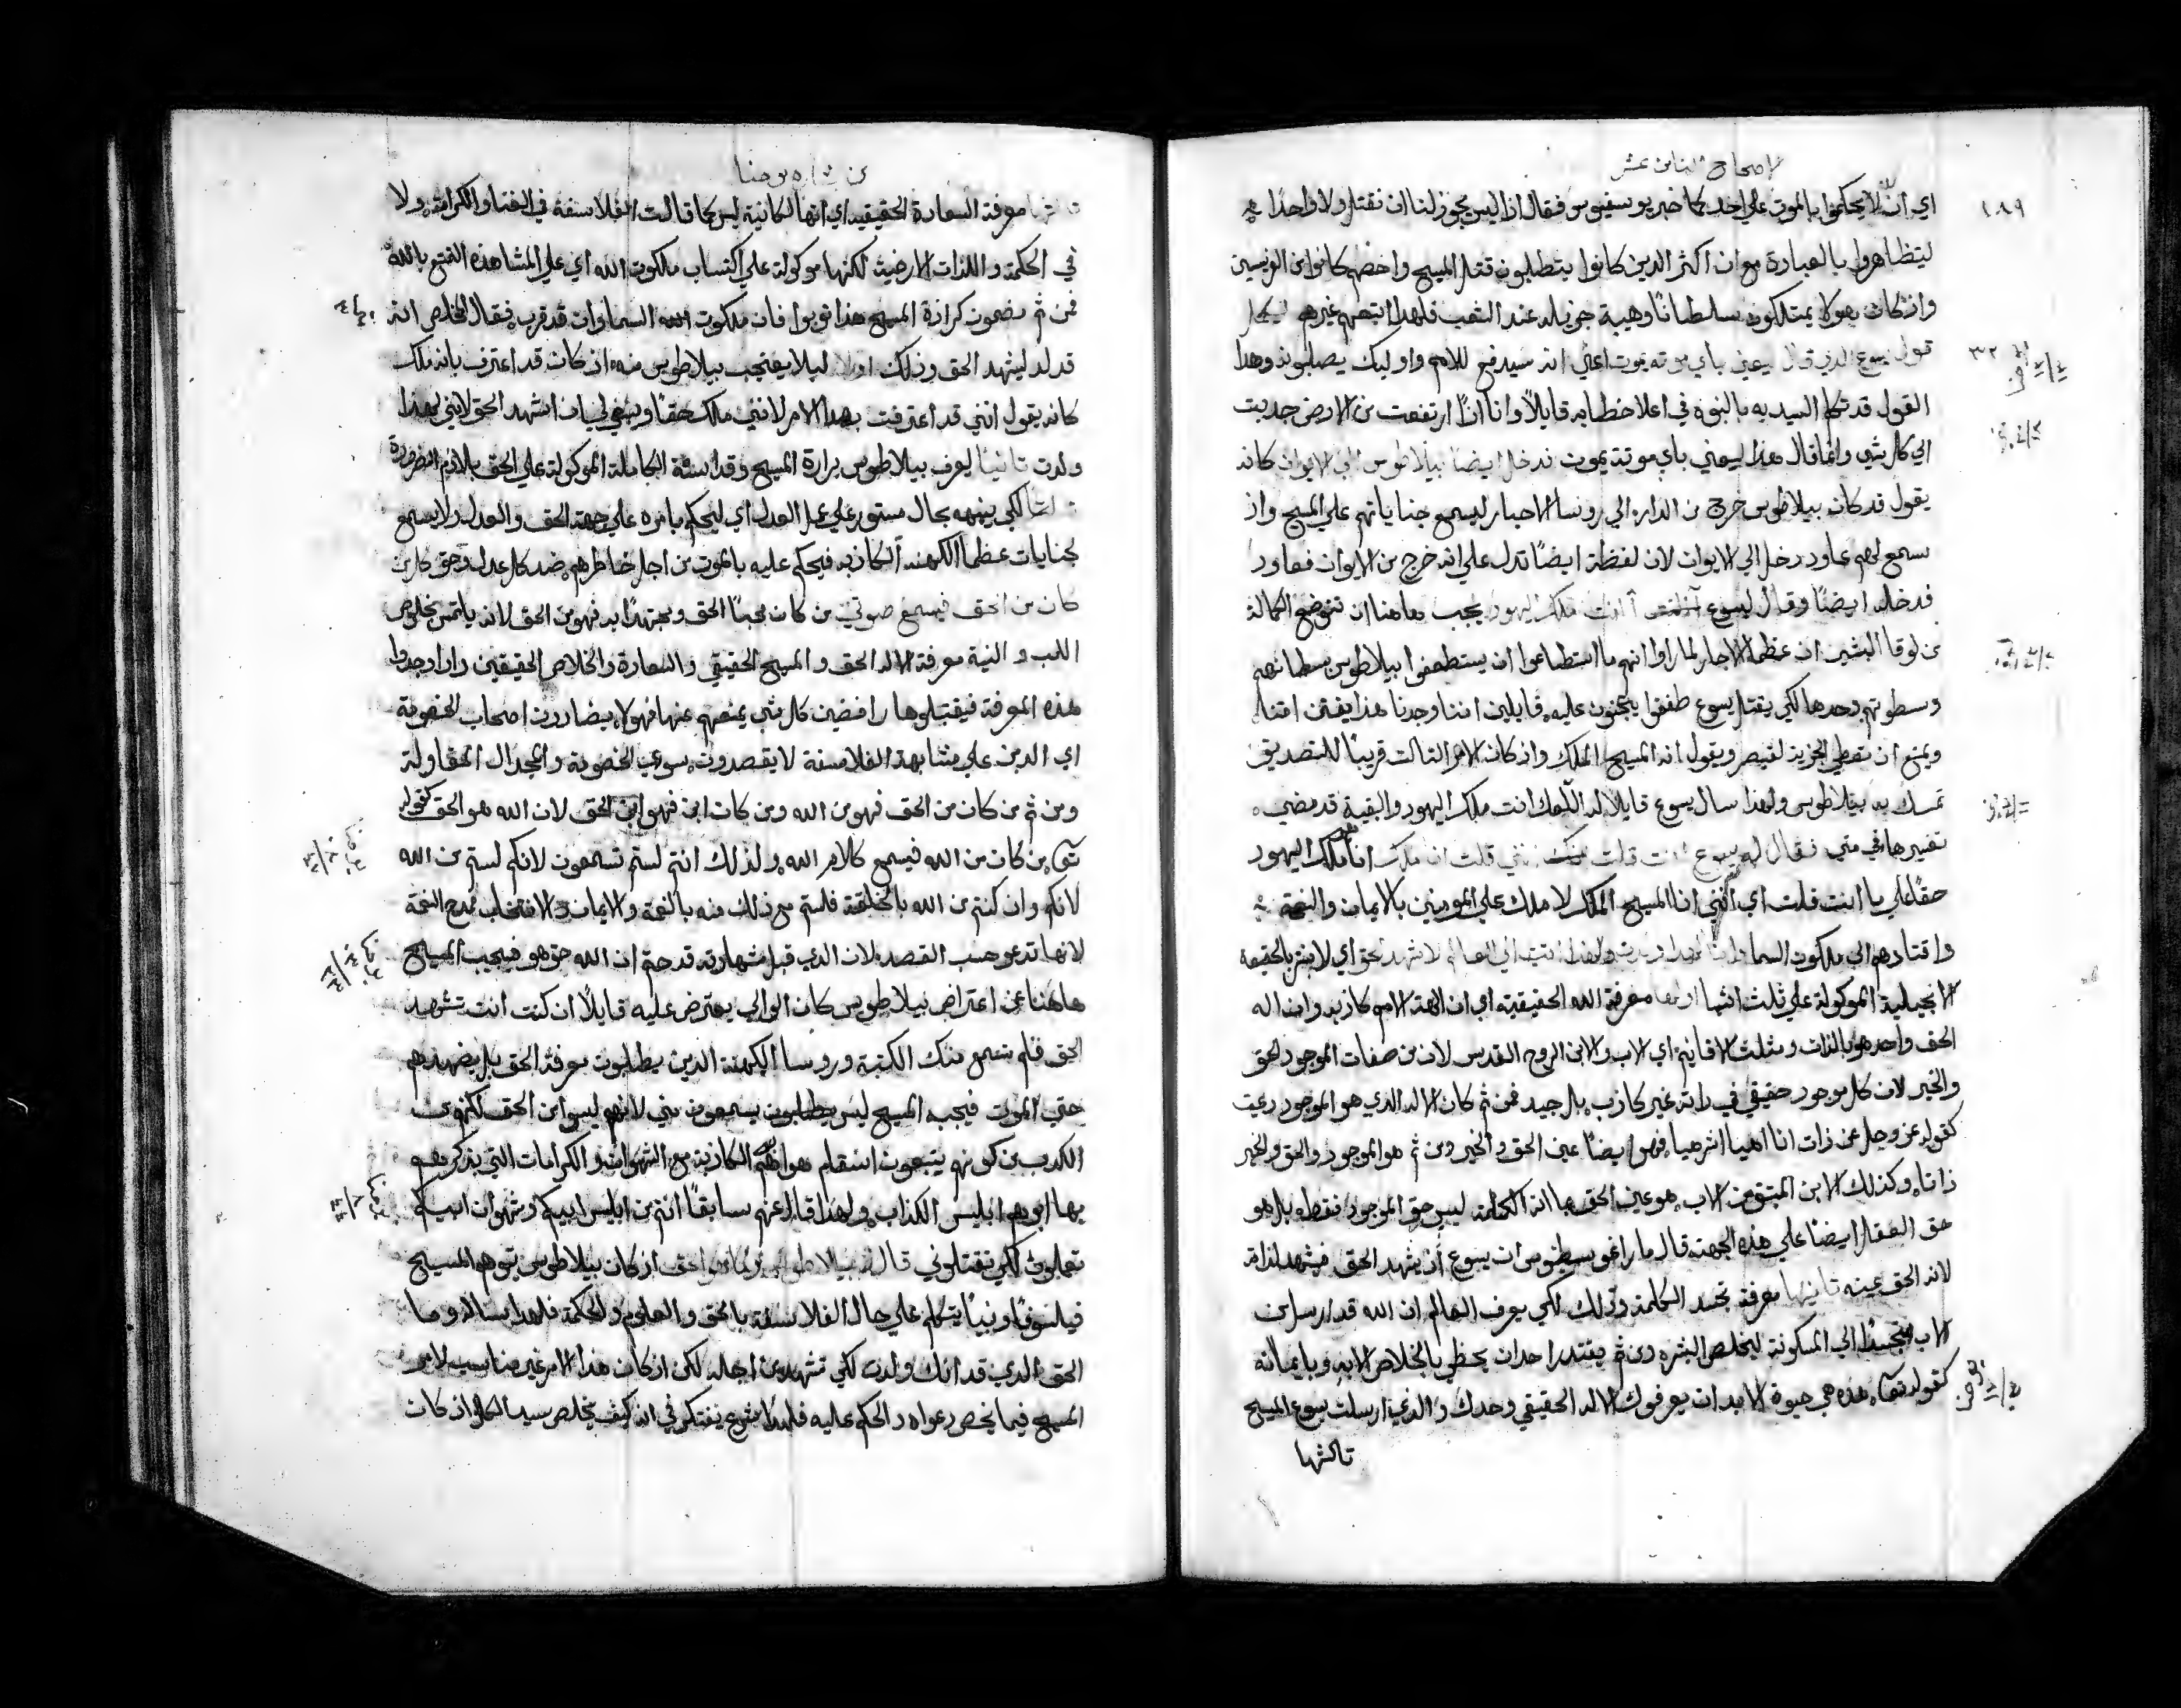 الاصحاح الثامن عشر
١٨٩
اي ان لا يحكموا بالموت علي احد كما خبر يوسيفوس فقال اذا ليس يجوز لنا ان نقتل ولا واحدًا
ليتظاهروا بالعبادة مع ان اكثر الدين كانوا يتطلبون قتل المسيح واخصهم كانوا من الفريسيين
واذ كان هولا يمتلكون سلطانًا وهيبة جزيله عند الشعب فلهدا اتبعهم غيرهم ليكمل
قول يسوع الدي قال ليعني باي موته يموت اعني انه سيدفع للامم واوليك يصلبونه وهدا ٣٢
القول قد تكلم السيد به بالنبوه في اعلا خطابه قايلاً وانا اذا ارتفعت من الارض جدبت
الي كل شي وانما قال هدا ليعني باي موتة يموت فدخل ايضًا بيلاطوس الي الايوان كانه
يقول قد كان بيلاطوس خرج من الدار الي روسا الاحبار ليسمع جناياتهم علي المسيح واذ
سمع لهم عاود دخل الي الايوان لان لفظة ايضًا تدل علي انه خرج من الايوان فعاود
فدخله ايضًا وقال ليسوع أانت ملك اليهود يجب هاهنا ان نتوضح التكملة
من لوقا البشير ان عظما الاحبار لما راوا انهم ما استطاعوا ان يستطعفوا بيلاطوس بسطانهم
وسطوتهم وحدها لكي يقتل يسوع طفقوا يجنون عليه قايلين اننا وجدنا هدا يفتن امتنا
ويمنع ان نعطي الجزية لقيصر ويقول انه المسيح الملك واذ كان الامر التالت قريبًا للتصديق
تمسك به بيلاطوس ولهدا سال يسوع قايلاً له العلك انت ملك اليهود والبقية قد مضي
تفسيرها في متي فقال له يسوع انت قلت انني قلت ان ملك انا ملك اليهود
حقًا علي ما انت قلت اي انني انا المسيح الملك لاملك علي المومنين بالايمان والنعمة
واقتادهم الي ملكوت السما ولهدا اتيت الي العالم لاشهد للحق اي لابشر بالحقيقه
الانجيلية الموكولة علي ثلث اشيا اولها معرفة الله الحقيقية اي ان الهة الامم كاذبه وان اله
الحق واحد هو بالذات ومثلث الاقانيم اي الاب والابن الروح القدس لان من صفات الموجود الحق
والخير لان كل موجود حقيقي في داته غير كادب بل جيد فمن ثم كان الاله الدي هو الموجود
كقوله عز وجل عن ذات انا اهيا اشر هيا فهو ايضًا عين الحق والخير ومن ثم هو الموجود والحق والخير
ذاتا وكدلك الابن المنبثق من الاب هو عين الحق بما انه الكلمة ليس حق الموجود فقط بل هو
حق العقل ايضًا علي هده الجهة قال مار اغوسطينوس ان يسوع اذ يشهد الحق فيشهد لداته
لانه الحق عينه تانيها معرفة تجسد الكلمة ودلك لكي يعرف العالم ان الله قد ارسل ابن
الاب متجسدًا الي المسكونة ليخلص البشر ومن ثم يقتدر احد ان يحظي بالخلاص الا به وبايمانه
كقوله تعالي هده هي حيوة الابد ان يعرفوك الاله الحقيقي وحدك والدي ارسلت يسوع المسيح
تالثها
من بشارة يوحنا
تالثها معرفة السعادة الحقيقيه اي انها لكانية ليس كما قالت الفلاسفة في الغنا والكرامة ولا
في الحكمة واللذات الارضية لكنها موكولة علي اكتساب ملكوت الله اي علي المشاهده التمتع بالله
فمن ثم مضمون كرازة المسيح هدا توبوا فان ملكوت السماوات قد قرب فقال المخلص انه
قد ولد ليشهد الحق ودلك اولا ليلا يعتجب بيلاطوس منه ان كان قد اعترف بانه ملك
كانه يقول انني قد اعترفت بهدا الامر لانني ملك حقًا وينبغي لي ان اشهد الحق لانني لهدا
ولدت تانيًا ليعرف بيلاطوس برارة المسيح وقداسته الكاملة الموكولة علي الحق باللازم الضرورة
تالتًا لكي ينبهه بحال مستور علي عمل العدل اي ليحكم بامره علي جهة الحق والعدل ولا يسمع
لجنايات عظما الكهنه الكاذبه فيحكم عليه بالموت من اجل خاطرهم ضد كل عدل وحق كل من
كان من الحق فيسمع صوتي من كان محبًا الحق ومجتهدًا به فهو من الحق لانه يلتمس بخلوص
القلب والنية معرفة الاله الحق والمسيح الحقيقي والسعادة والخلاص الحقيقين وادا وجدوا
هده المعرفة فيقتبلوها رافضين كل شي يمنعهم عنها فهولا يضادون اصحاب الخصومة
اي الدين علي مشابهة الفلاسفة لا يقصدون سوي الخصومة والجدال المقاولة
ومن ثم من كان من الحق فهو من الله ومن كان ابن فهو ابن الحق لان الله هو الحق كقوله
تعالي من كان من الله فيسمع كلام الله ولدلك انتم لستم تسمعون لانكم لستم من الله
لانكم وان كنتم من الله بالخلقة فلستم مع دلك منه بالنعمة والايمان والانتخاب فمدح النعمة
لانها تدعو حسب القصد لان الدي قبل شهادته قد ختم ان الله حق هو فيجيب المسيح
هاهنا عن اعتراض بيلاطوس كان الوالي يعترض عليه قايلاً ان كنت انت تشهد
الحق فلم تسمع منك الكتبة وروسا الكهنة الدين يطلبون معرفة الحق بل يضهدهم
حتي الموت فيجبه المسيح ليس يطلبون يسمعون مني لانهم ليسوا من الحق لكنهم من
الكدب من كونهم يتبعون اسقام هواهم الكادبة مع الشهوات والكرامات التي يذكرهم
بها ابوهم ابليس الكذاب ولهدا قال عنهم سابقًا انتم من ابليس ابيكم وشهوات ابيكم
تعملون لكي تقتلوني قال له بيلاطوس وما هو الحق اذ كان بيلاطوس يتوهم المسيح
فيلسوفًا ونبيًا يتكلم علي حال الفلاسفة بالحق والعلوم والحكمة فلهدا ساله وما
الحق الدي قد انك ولدت لكي تشهد من اجله لكن اذ كان هدا الامر غير مناسب لامر
المسيح فيما يخص دعواه والحكم عليه فلهدا شرع يفتكر في انه كيف يخلص سيد الكل اذ كان